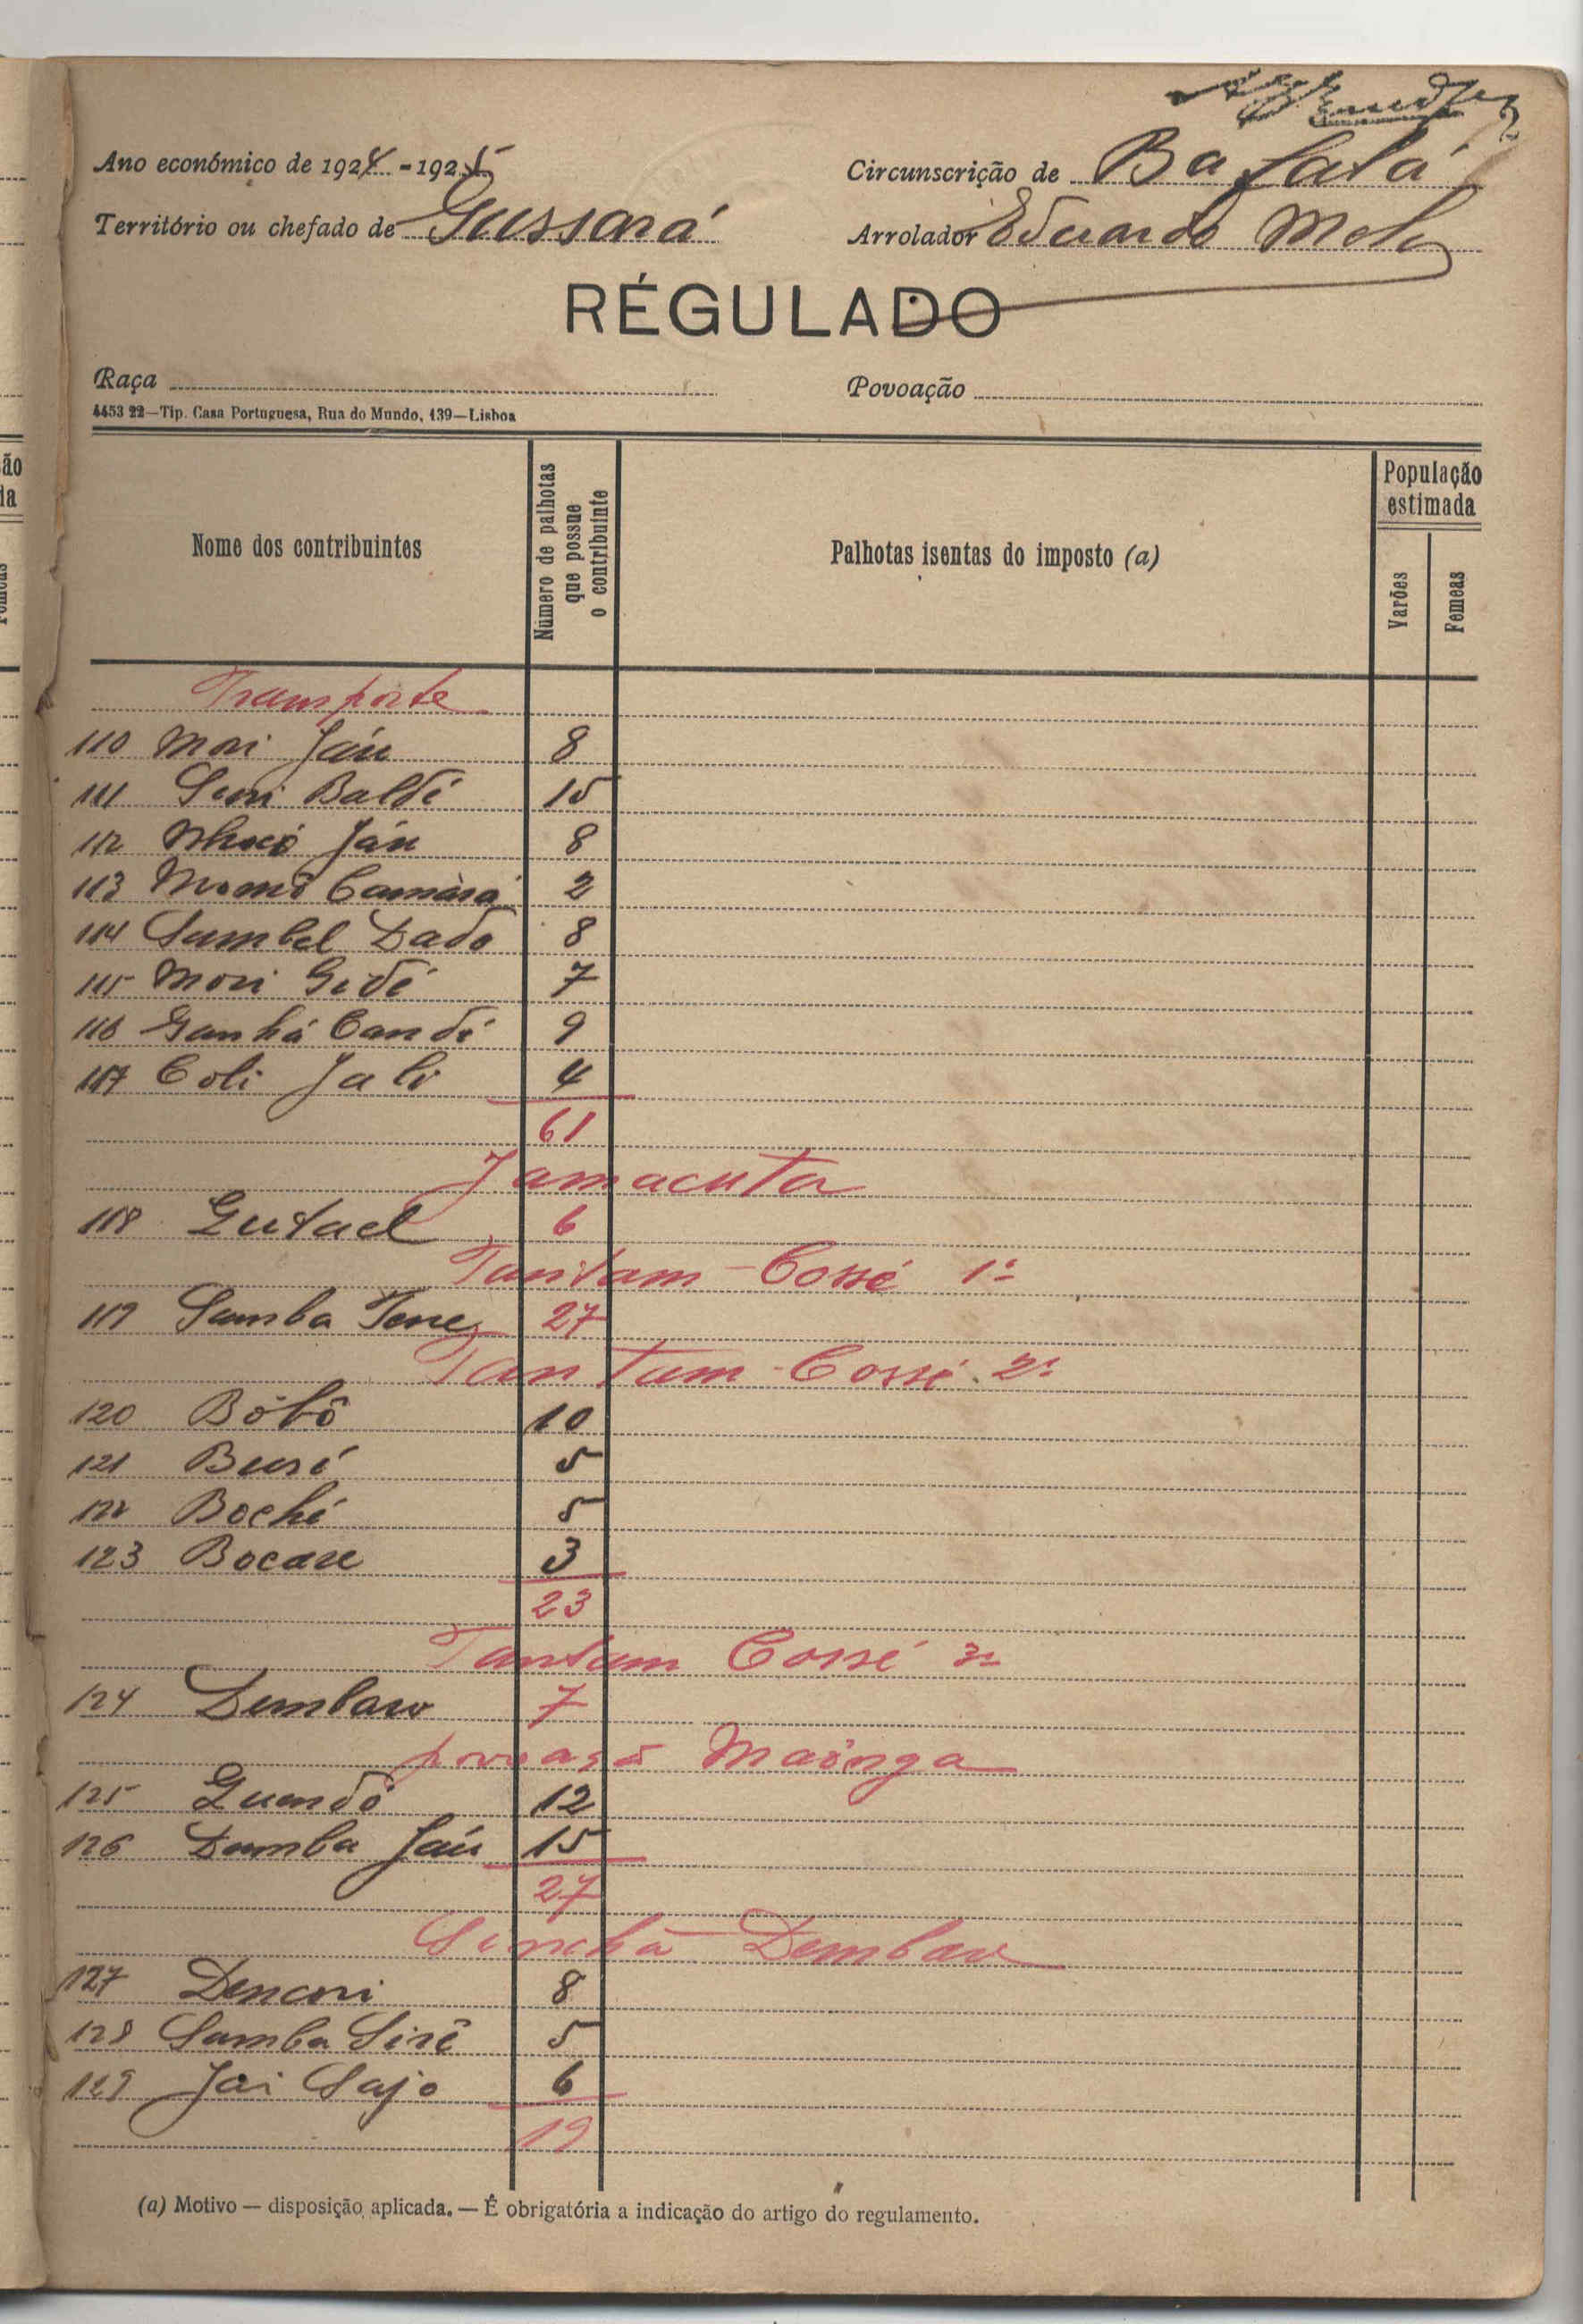 Ano económico de 1924-1925
Circunscrição de Bafatá
Território ou chefado de Gussará
Arrolador Eduardo Melo
RÉGULADO
Raça
Povoação
4453 22—Tip. Casa Portuguesa, Rua do Mundo, 139—Lisboa
Nome dos contribuintes
Número de palhotas que possue o contribuinte
Palhotas isentas do imposto (a)
População estimada
Varões
Femeas
Transporte
110 Mori Jáu 8
111 Suri Baldé 15
112 Jáu 8
113 Momô Camàrá 2
114 Sambel Dado 8
115 Mori Gidé 7
116 Ganhá Candé 9
117 Coli Jalo 4
61
Jamacuta
118 Gutael 6
Tantam-Cossé 1º
119 Samba Tene 27
Tantam-Cossé 2º
120 Bôbô 10
121 Buré 5
122 Boché 5
123 Bocare 3
23
Tantam Cossé 3º
124 Dembaro 7
povoação Maònga
125 Guendô 12
126 Demba Jáu 15
27
Sinchã Dembav
127 Dencori 8
128 Samba Sirê 5
129 Jai Sajo 6
19
(a) Motivo — disposição aplicada. — É obrigatória a indicação do artigo do regulamento.